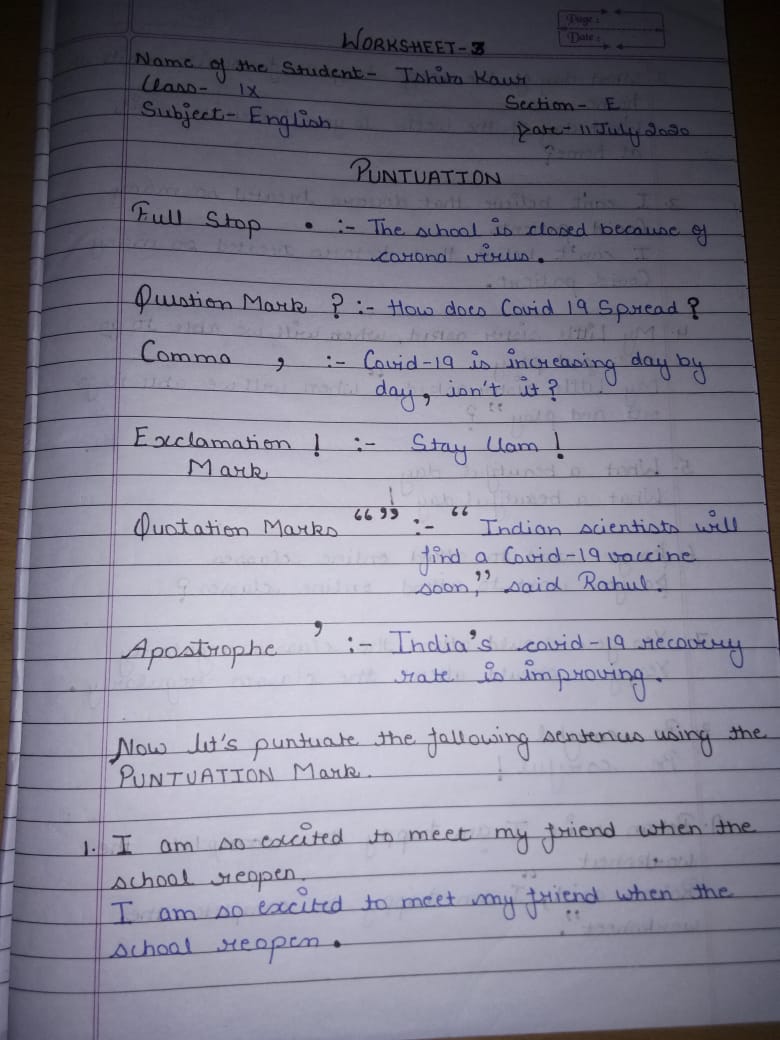 Page :
Date :
WORKSHEET-3
Name of the Student- Ishita Kaur
Class- IX
Section- E
Subject- English
Date- 11 July 2020
PUNTUATION
Full Stop . :- The school is closed because of
corona virus.
Quistion Mark ? :- How does Covid 19 Spread?
Comma , :- Covid-19 is increasing day by
day, isn't it?
Exclamation ! :- Stay Clam!
Mark
Quotation Marks “ ” :- “ Indian scientists will
find a Covid-19 vaccine
soon,” said Rahul.
Apostrophe ’ :- India's covid-19 recovery
rate is improving.
Now let's puntuate the following sentences using the
PUNTUATION Mark.
1. I am so excited to meet my friend when the
school reopen.
I am so excited to meet my friend when the
school reopen.